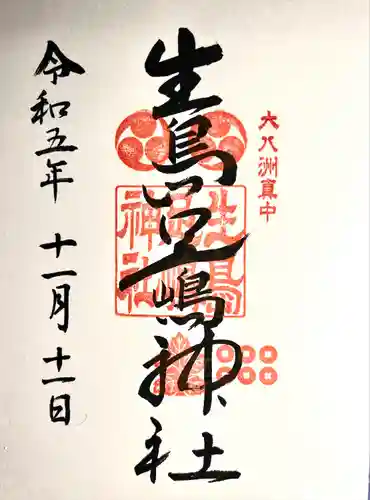 大八洲真中
生島足嶋神社
生島
足嶋
神社
令和五年 十一月 十一日